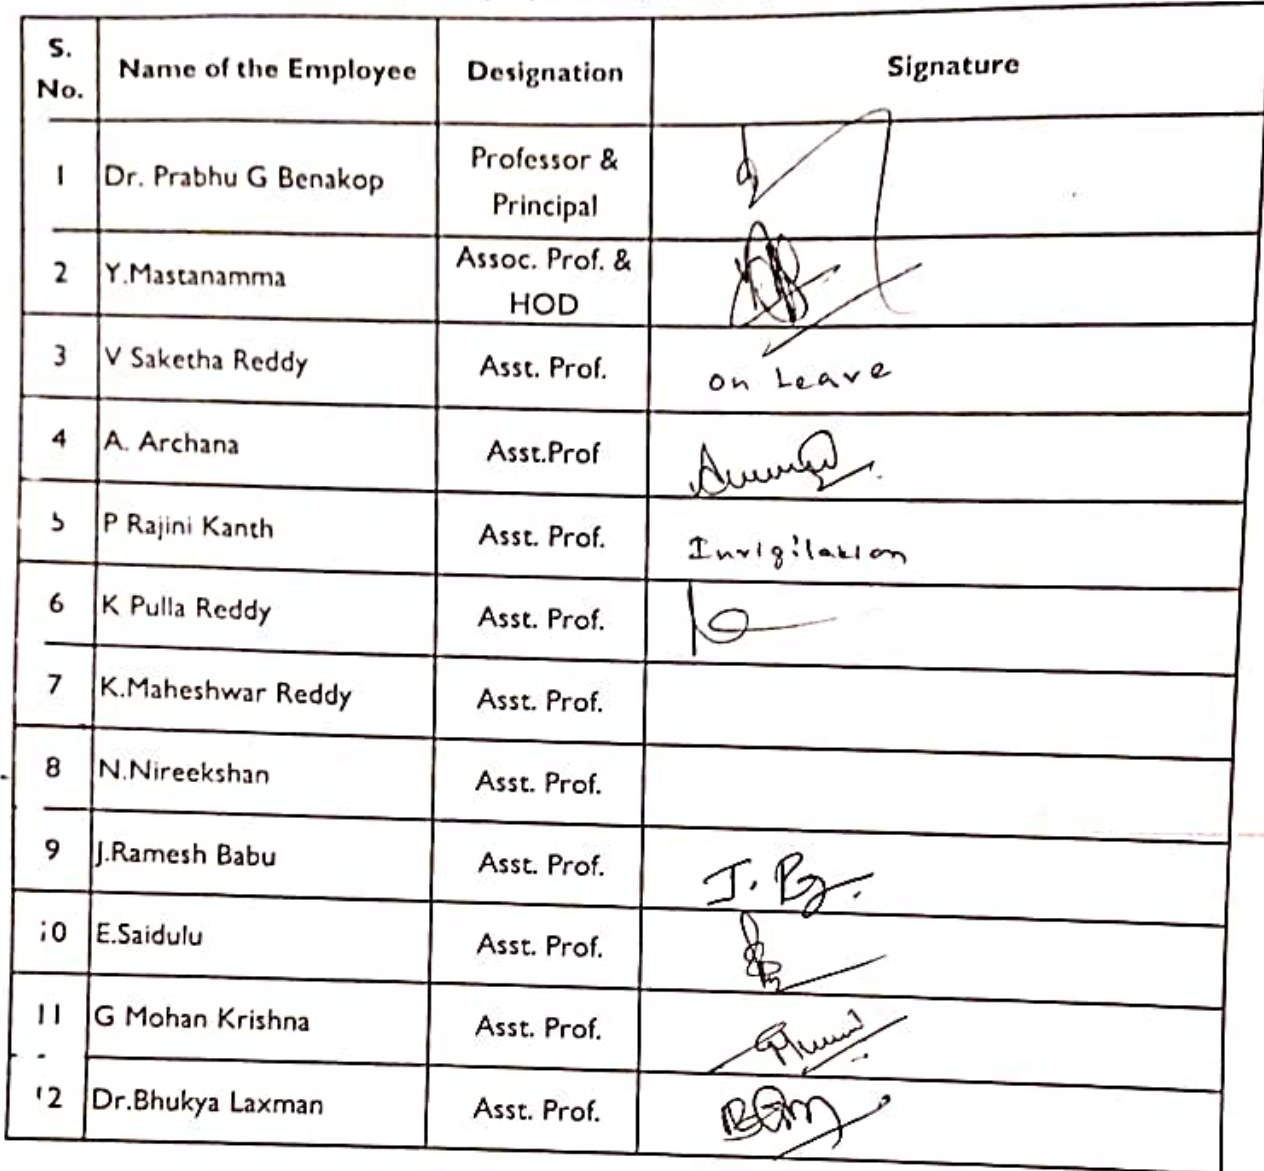 S. No. Name of the Employee Designation Signature
1 Dr. Prabhu G Benakop Professor & Principal
2 Y.Mastanamma Assoc. Prof. & HOD
3 V Saketha Reddy Asst. Prof. on Leave
4 A. Archana Asst.Prof
5 P Rajini Kanth Asst. Prof. Invigilation
6 K Pulla Reddy Asst. Prof.
7 K.Maheshwar Reddy Asst. Prof.
8 N.Nireekshan Asst. Prof.
9 J.Ramesh Babu Asst. Prof.
10 E.Saidulu Asst. Prof.
11 G Mohan Krishna Asst. Prof.
12 Dr.Bhukya Laxman Asst. Prof.